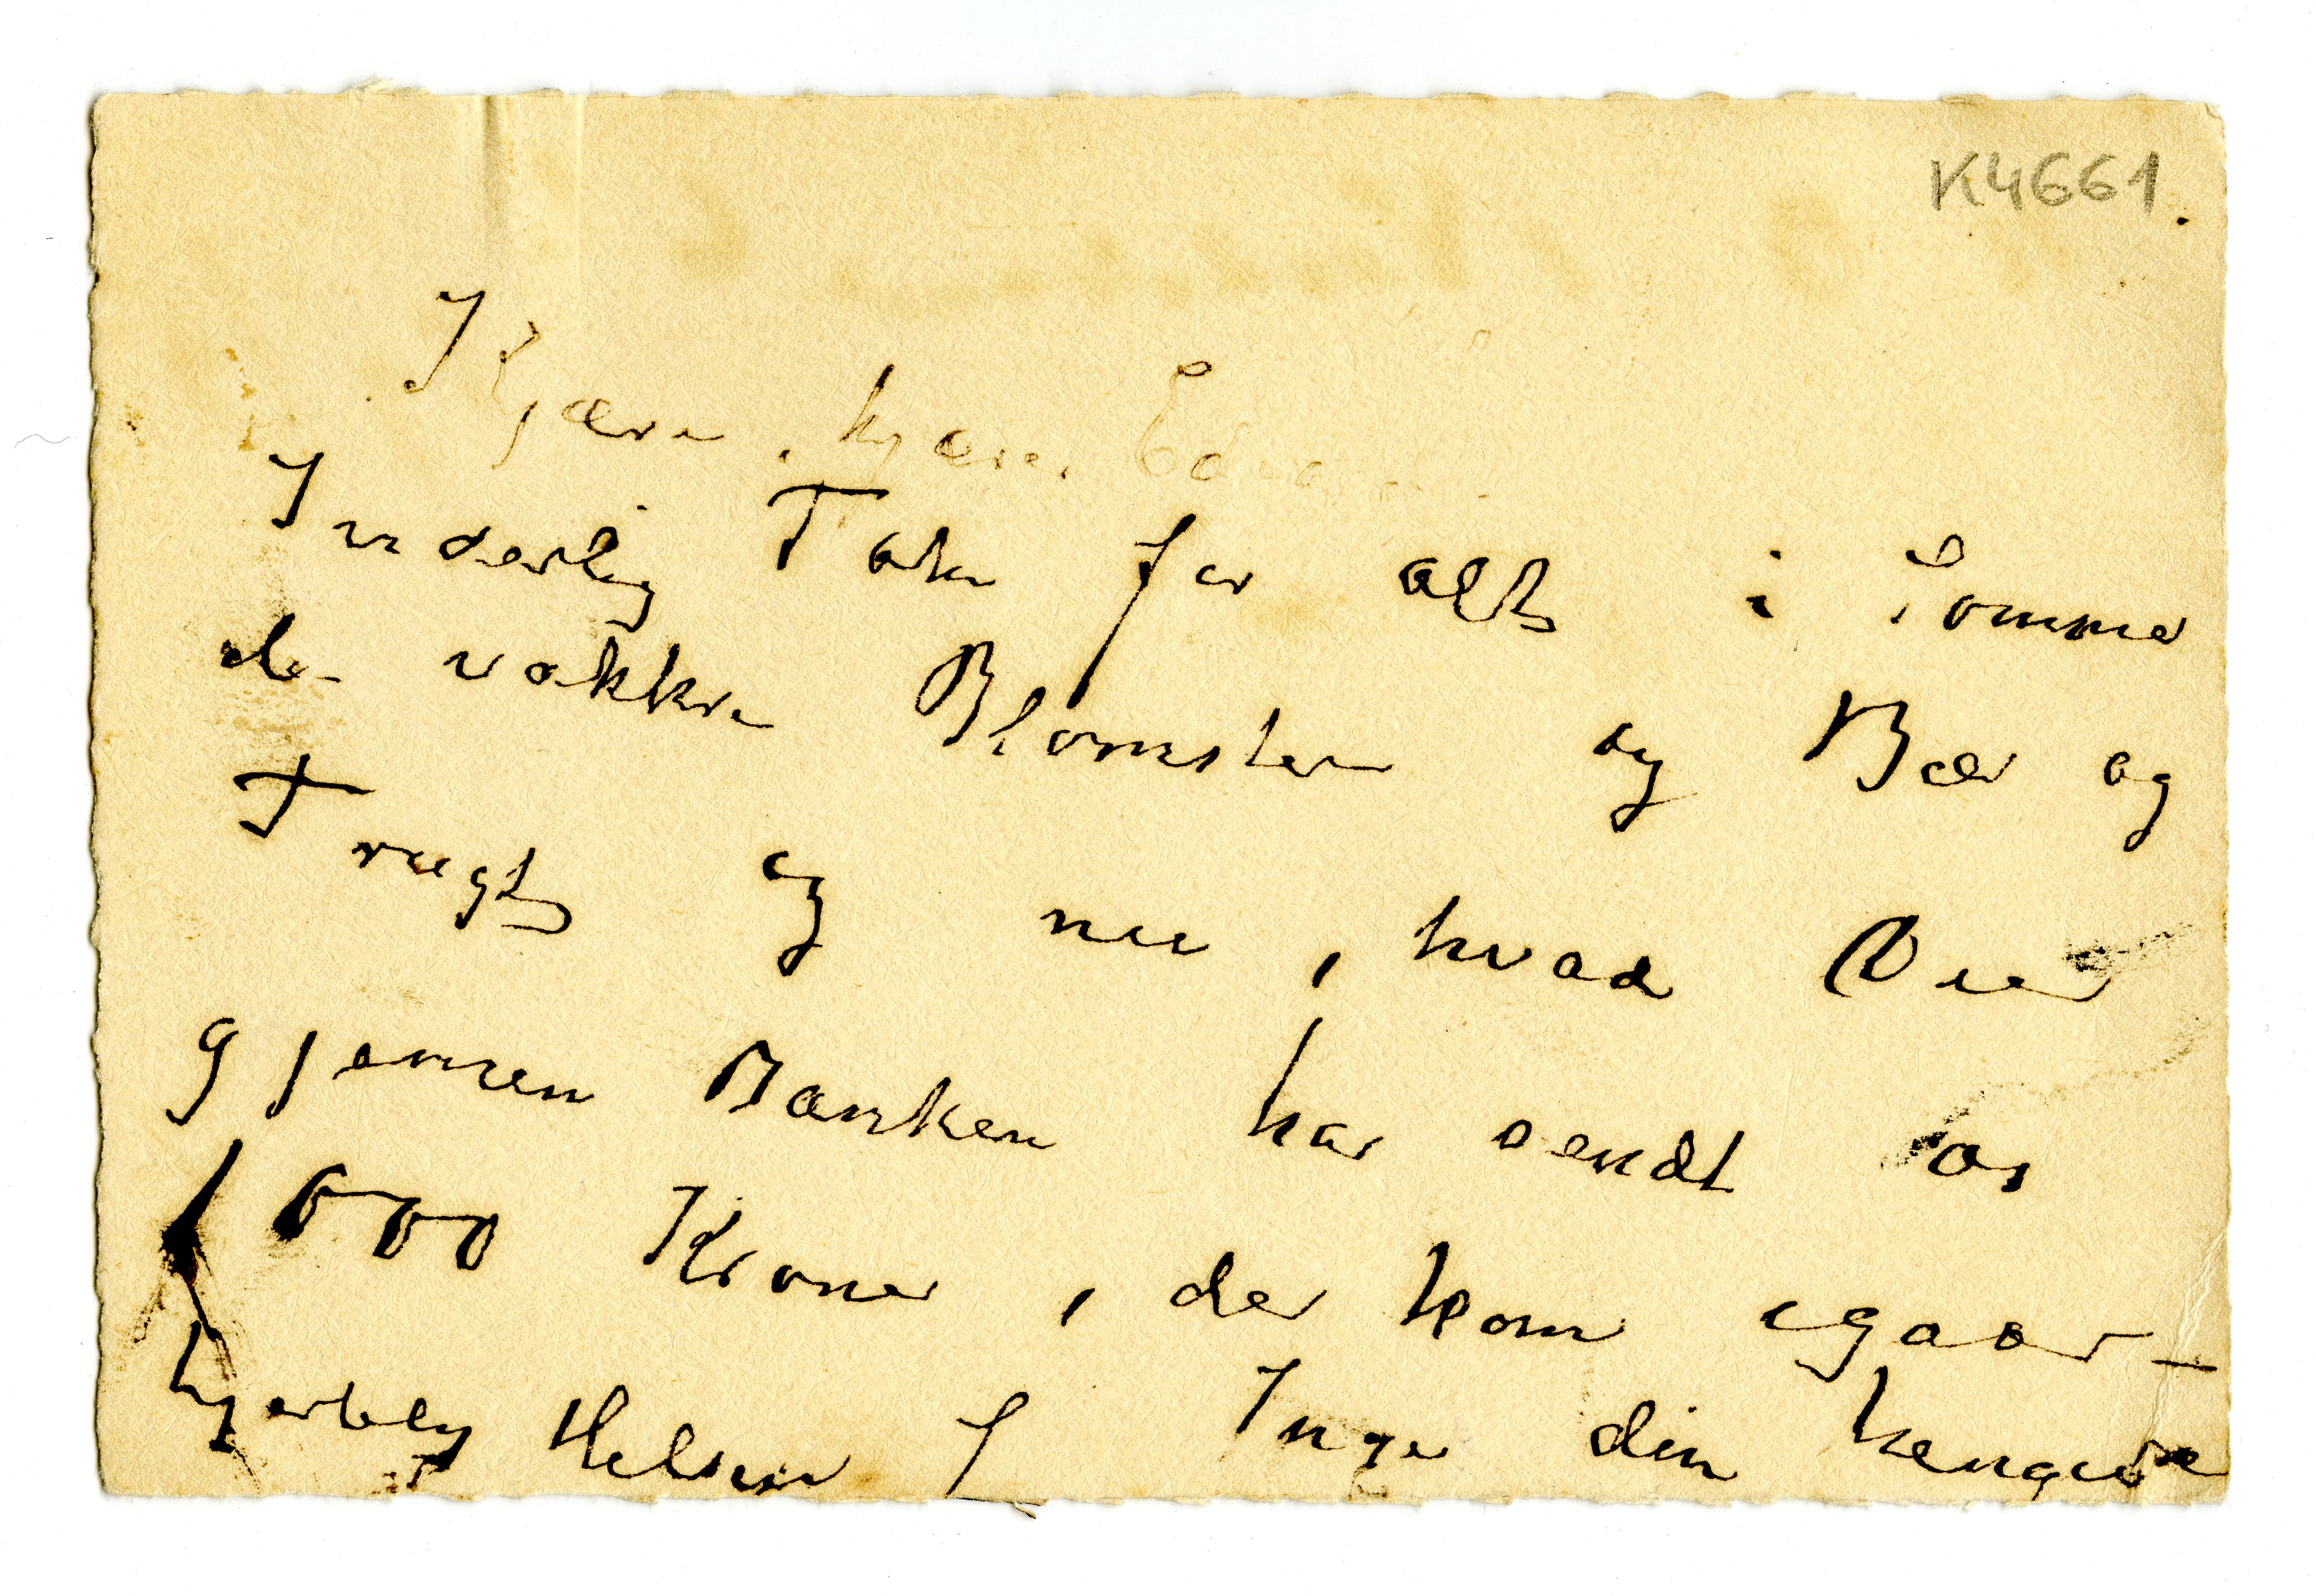 K4661.
Kjære, kjære Edvard
Inderlig Tak for alt i Sommer
de vakkre Blomster og Bær og
Frugt og nu, hvad Du
gjennem Banken har sendt os
1000 Kroner, der kom igaar –
hjertelig Hilsen f Inger din hengivne